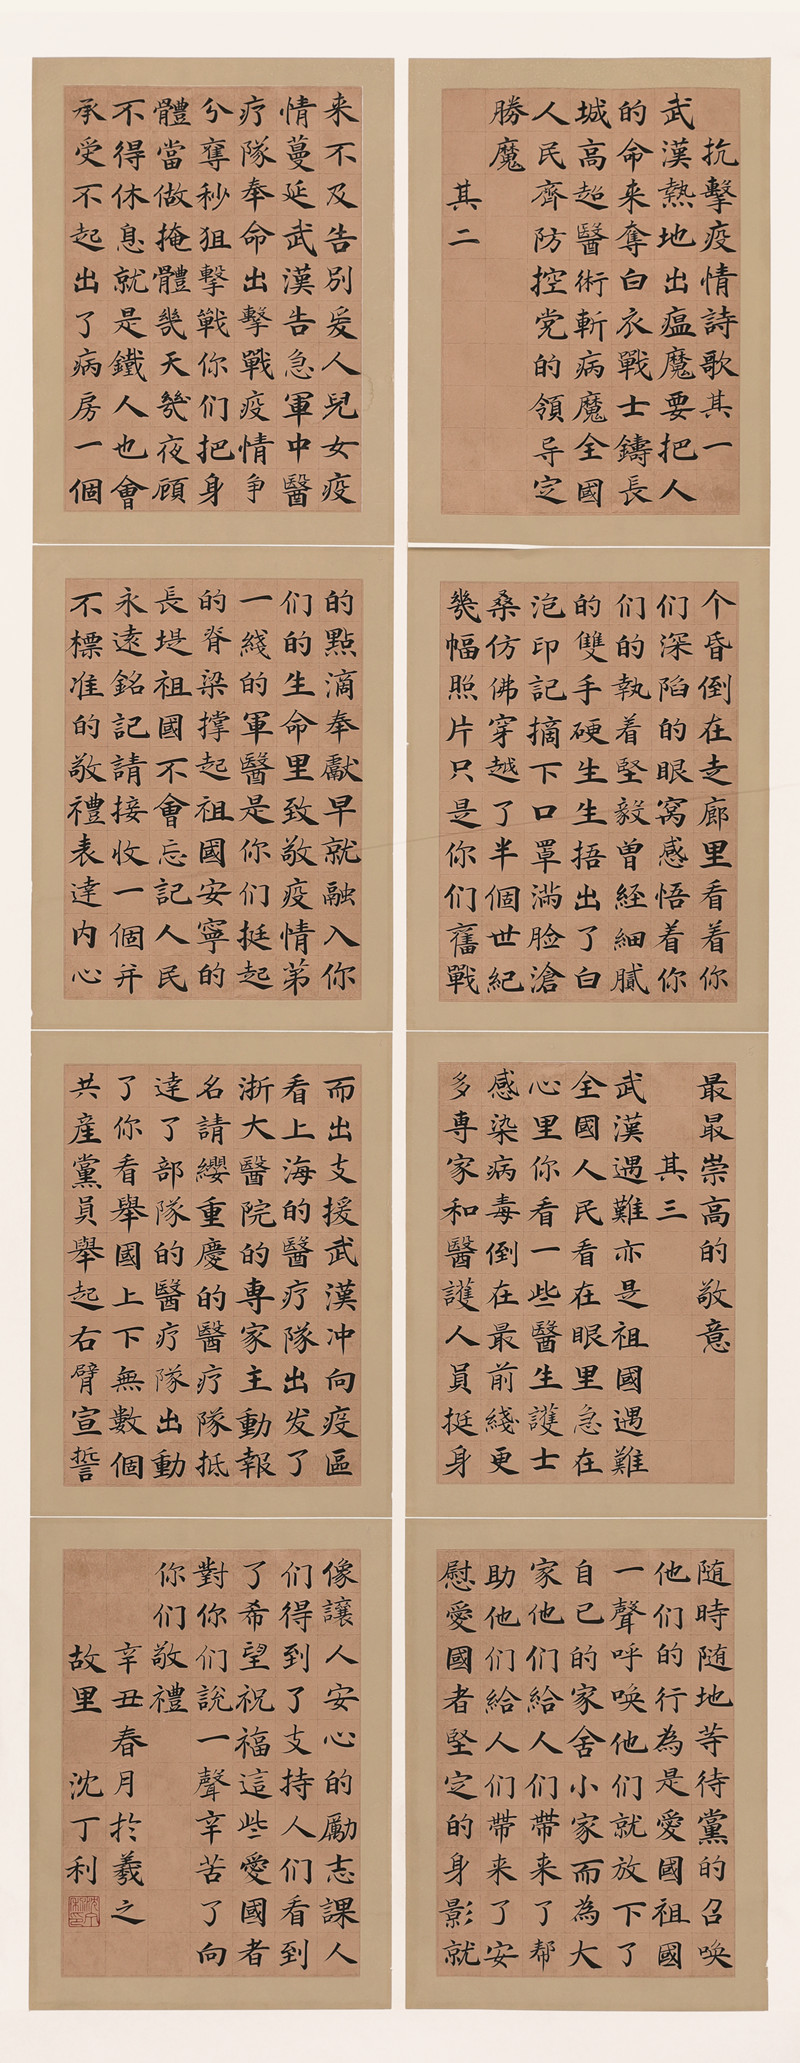 抗擊疫情詩歌其一
武漢熱地出瘟魔要把人
的命来奪白衣戰士鑄長
城高超醫術斬病魔全國
人民齊防控党的領导定
勝魔
其二
来不及告別爱人兒女疫
情蔓延武漢告急軍中醫
疗隊奉命出擊戰疫情争
分奪秒狙擊戰你们把身
體當做掩體幾天幾夜顾
不得休息就是鐵人也會
承受不起出了病房一個
个昏倒在走廊里看着你
们深陷的眼窝感悟着你
们的執着堅毅曾经細膩
的雙手硬生生捂出了白
泡印記摘下口罩满脸滄
桑仿佛穿越了半個世紀
幾幅照片只是你们舊戰
的點滴奉獻早就融入你
们的生命里致敬疫情第
一綫的軍醫是你们挺起
的脊梁撑起祖國安寧的
長堤祖國不會忘記人民
永遠銘記請接收一個并
不標准的敬禮表達内心
最最崇高的敬意
其三
武漢遇難亦是祖國遇難
全國人民看在眼里急在
心里你看一些醫生護士
感染病毒倒在最前綫更
多專家和醫護人員挺身
而出支援武漢冲向疫區
看上海的醫疗隊出发了
浙大醫院的專家主動報
名請纓重慶的醫疗隊抵
達了部隊的醫疗隊出動
了你看舉國上下無數個
共産黨員舉起右臂宣誓
随時随地等待黨的召唤
他们的行為是愛國祖國
一聲呼唤他们就放下了
自己的家舍小家而為大
家他们給人们带来了帮
助他们給人们带来了安
慰愛國者堅定的身影就
像讓人安心的勵志課人
们得到了支持人们看到
了希望祝福這些愛國者
對你们說一聲辛苦了向
你们敬禮
辛丑春月於羲之
故里 沈丁利